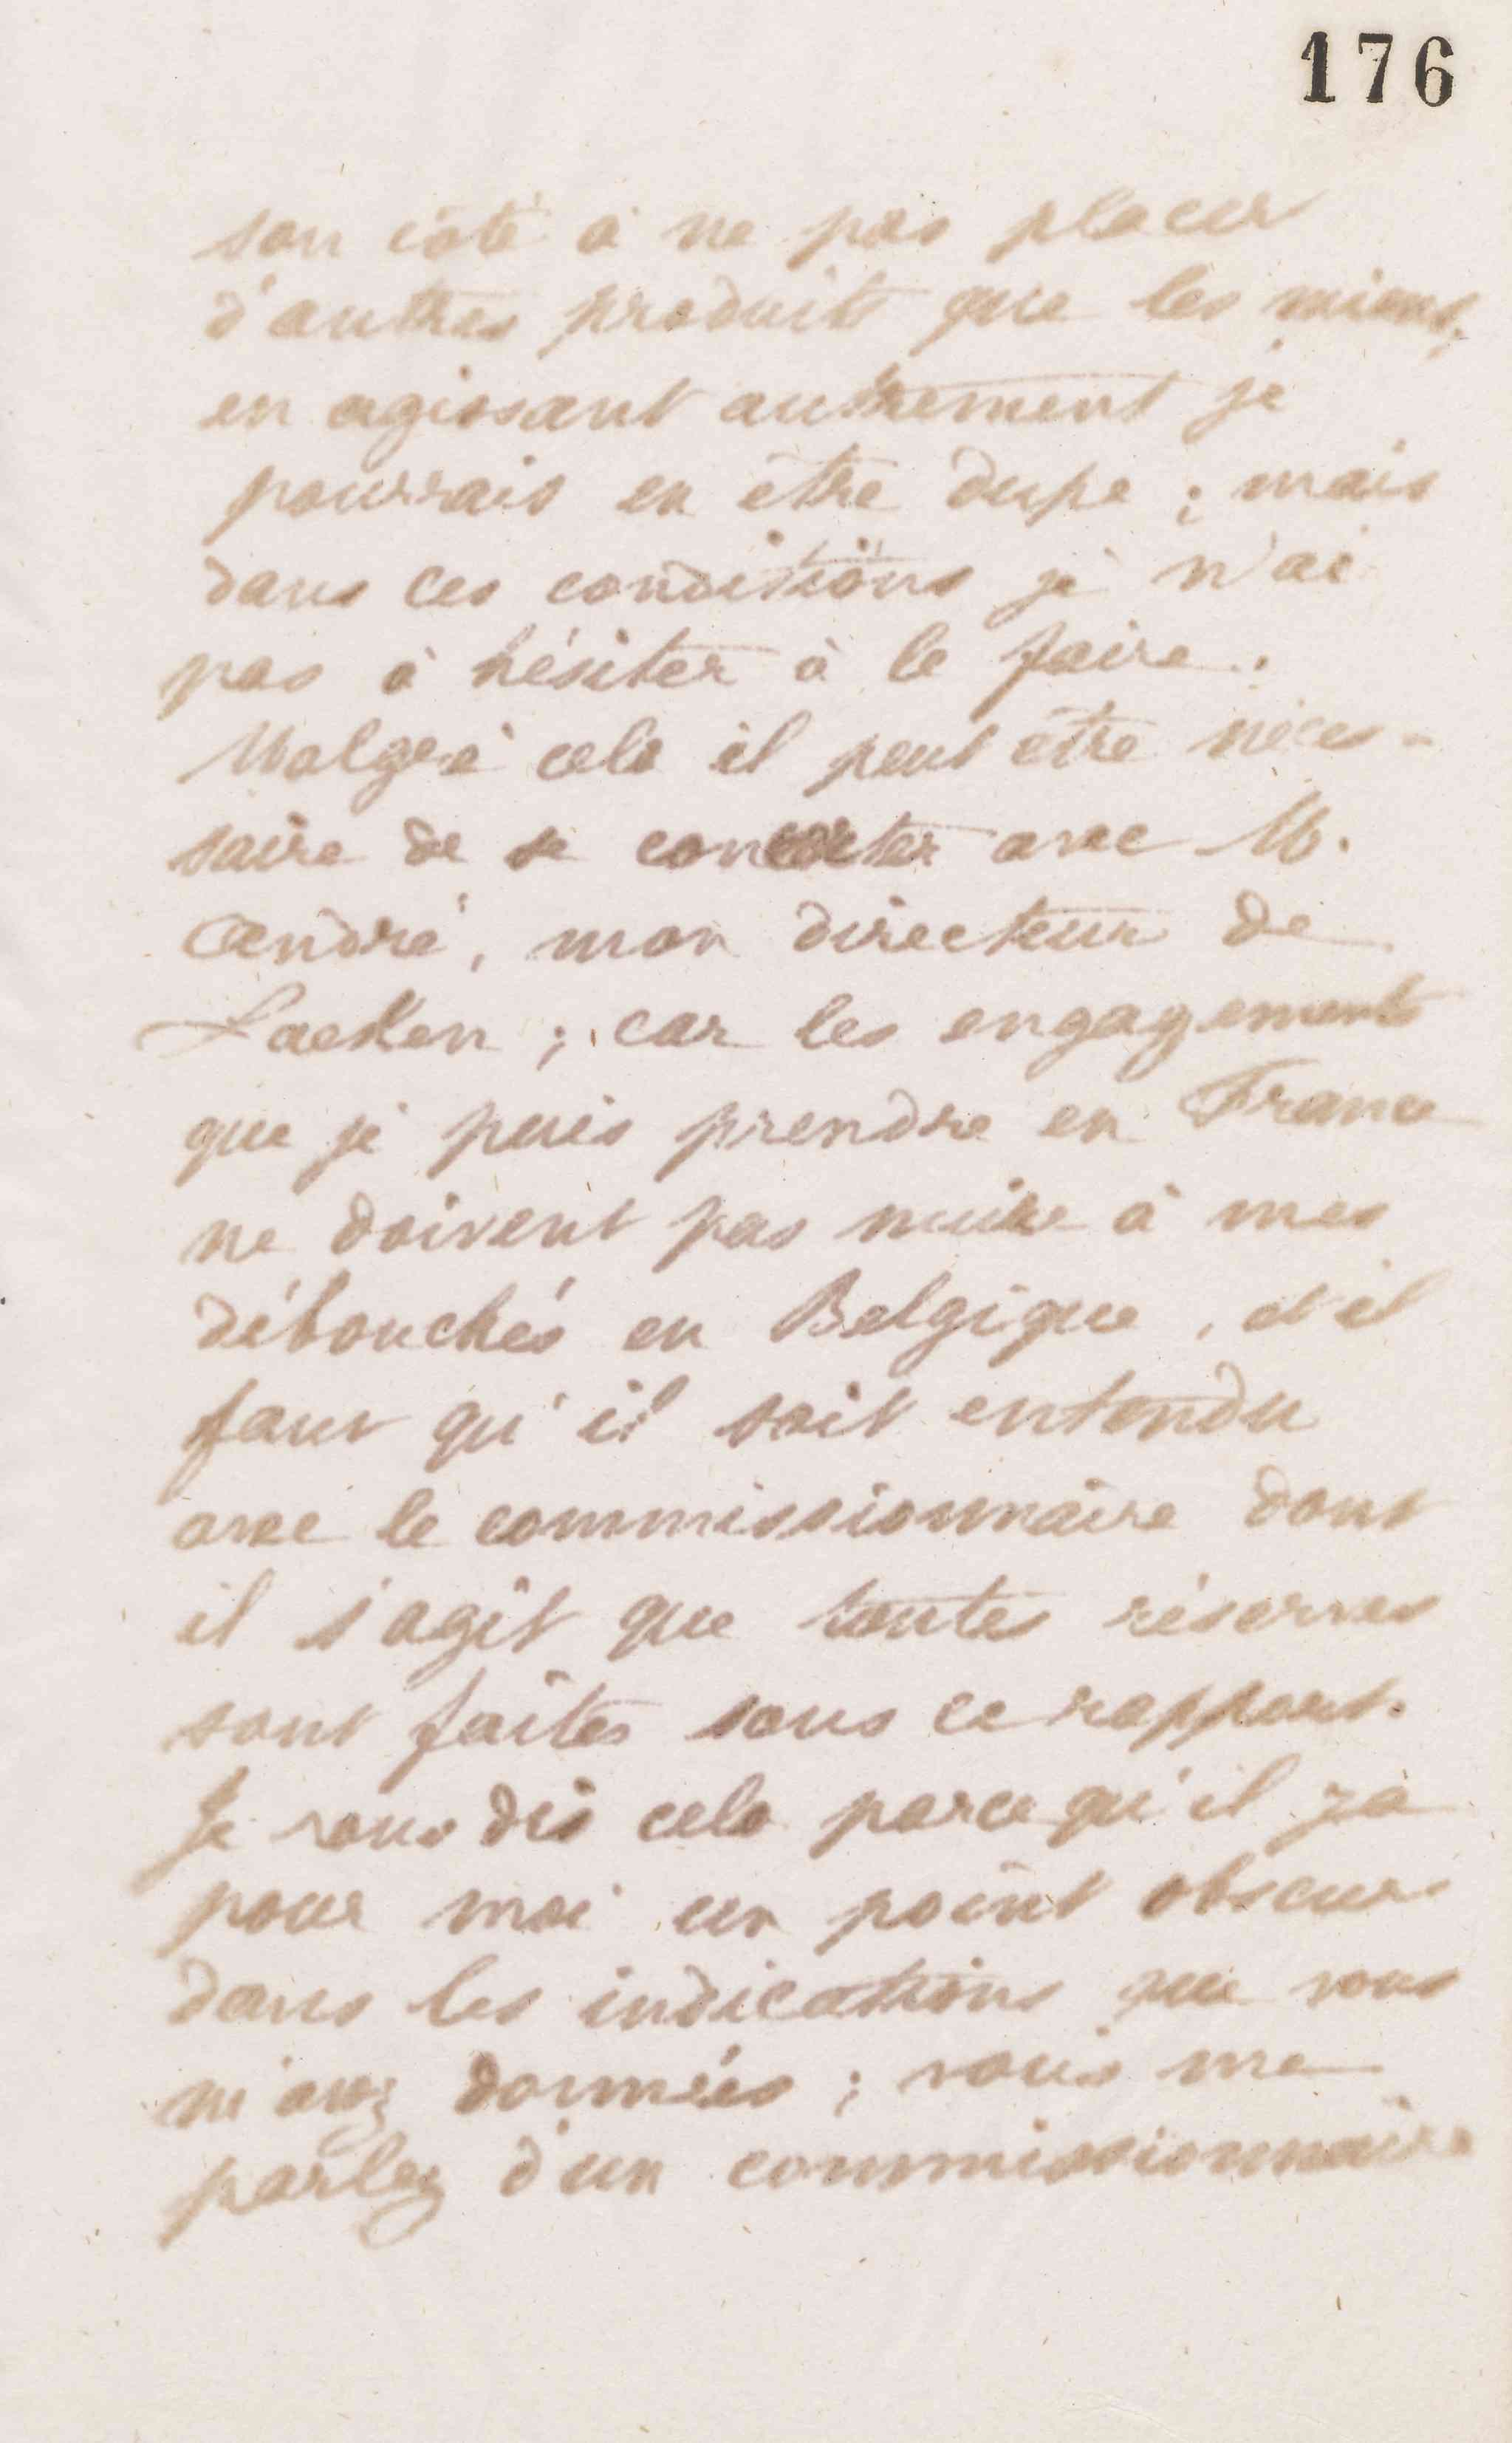 176
son côté à ne pas placer
d'autres produits que les miens;
en agissant autrement je
pourrais en être dupe ; mais
dans ces conditions je n'ai
pas à hésiter à le faire.
Malgré cela il peut être néces-
saire de se concerter avec M.
André, mon directeur de
Laeken ; car les engagements
que je puis prendre en France
ne doivent pas nuire à mes
débouchés en Belgique, et il
faut qu'il soit entendu
avec le commissionnaire dont
il s'agit que toutes réserves
sont faites sous ce rapport.
Je vous dis cela parce qu'il y a
pour moi un point obscur
dans les indications que vous
m'avez données ; vous me
parlez d'un commissionnaire